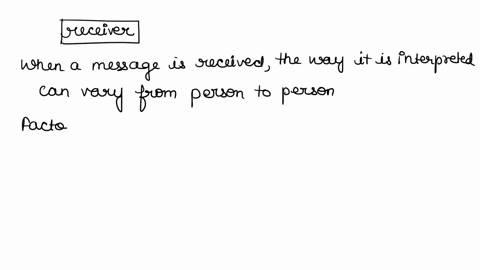 receiver
When a message is received, the way it is interpreted
can vary from person to person
Facto